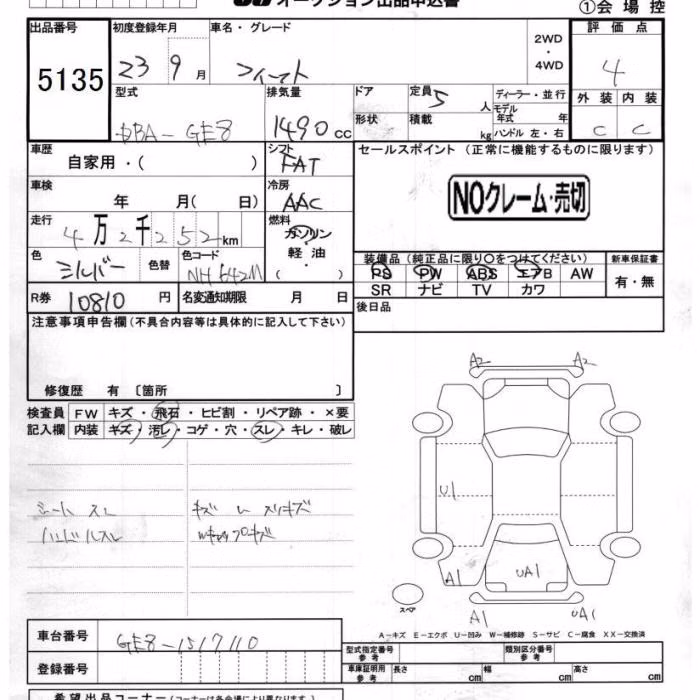 オークション出品申込書
①会場控
出品番号 初度登録年月 車名・グレード 2WD・4WD 評価点
5135 23 9月 フィット 4
型式 排気量 ドア 定員 5人 ディーラー・並行 外装 内装
DBA-GE8 1490cc 形状 積載 kg モデル年式 年 ハンドル 左・右 C C
車歴 シフト セールスポイント (正常に機能するものに限ります)
自家用・( ) FAT
車検 冷房 NOクレーム・売切
年 月( 日) AAC
走行 燃料
4万2千252km ガソリン
軽油
( )
色 色替 色コード 装備品(純正品に限り○をつけてください) 新車保証書
シルバー NH642M PS PW ABS エアB AW 有・無
SR ナビ TV カワ
R券 10810円 名変通知期限 月 日 後日品
注意事項申告欄(不具合内容等は具体的に記入して下さい)
修復歴 有 〔箇所 〕
検査員 FW キズ・飛石・ヒビ割・リペア跡・×要
記入欄 内装 キズ・汚レ・コゲ・穴・スレ・キレ・破レ
A2 A2
U1
シートスレ キズ
ハンドルスレ
A1 UA1
スペア
A1 UA1
A-キズ E-エクボ U-凹み W-補修跡 S-サビ C-腐食 XX-交換済
車台番号 GE8-1517110
型式指定番号 参考 類別区分番号 参考
登録番号 車庫証明用 参考 長さ cm 幅 cm 高さ cm
希望出品コーナー(コーナーは各会場により異なります)